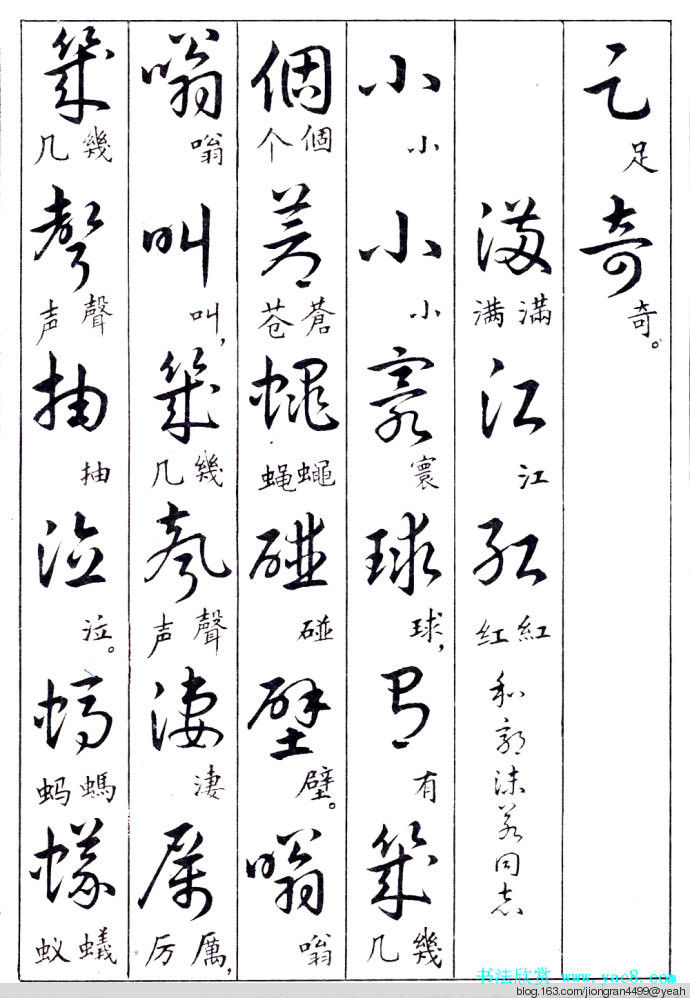 足奇
足 奇。
滿江紅 和郭沫若同志
滿满 江 紅红
小小寰球有幾
小 小 寰 球， 有 幾几
個蒼蠅碰壁嗡
個个 蒼苍 蠅蝇 碰 壁。 嗡
嗡叫幾聲淒厲
嗡 叫， 幾几 聲声 淒 厲厉，
幾聲抽泣螞蟻
幾几 聲声 抽 泣。 螞蚂 蟻蚁
书法欣赏 www.yac8.com
blog.163.com/jiongran4499@yeah